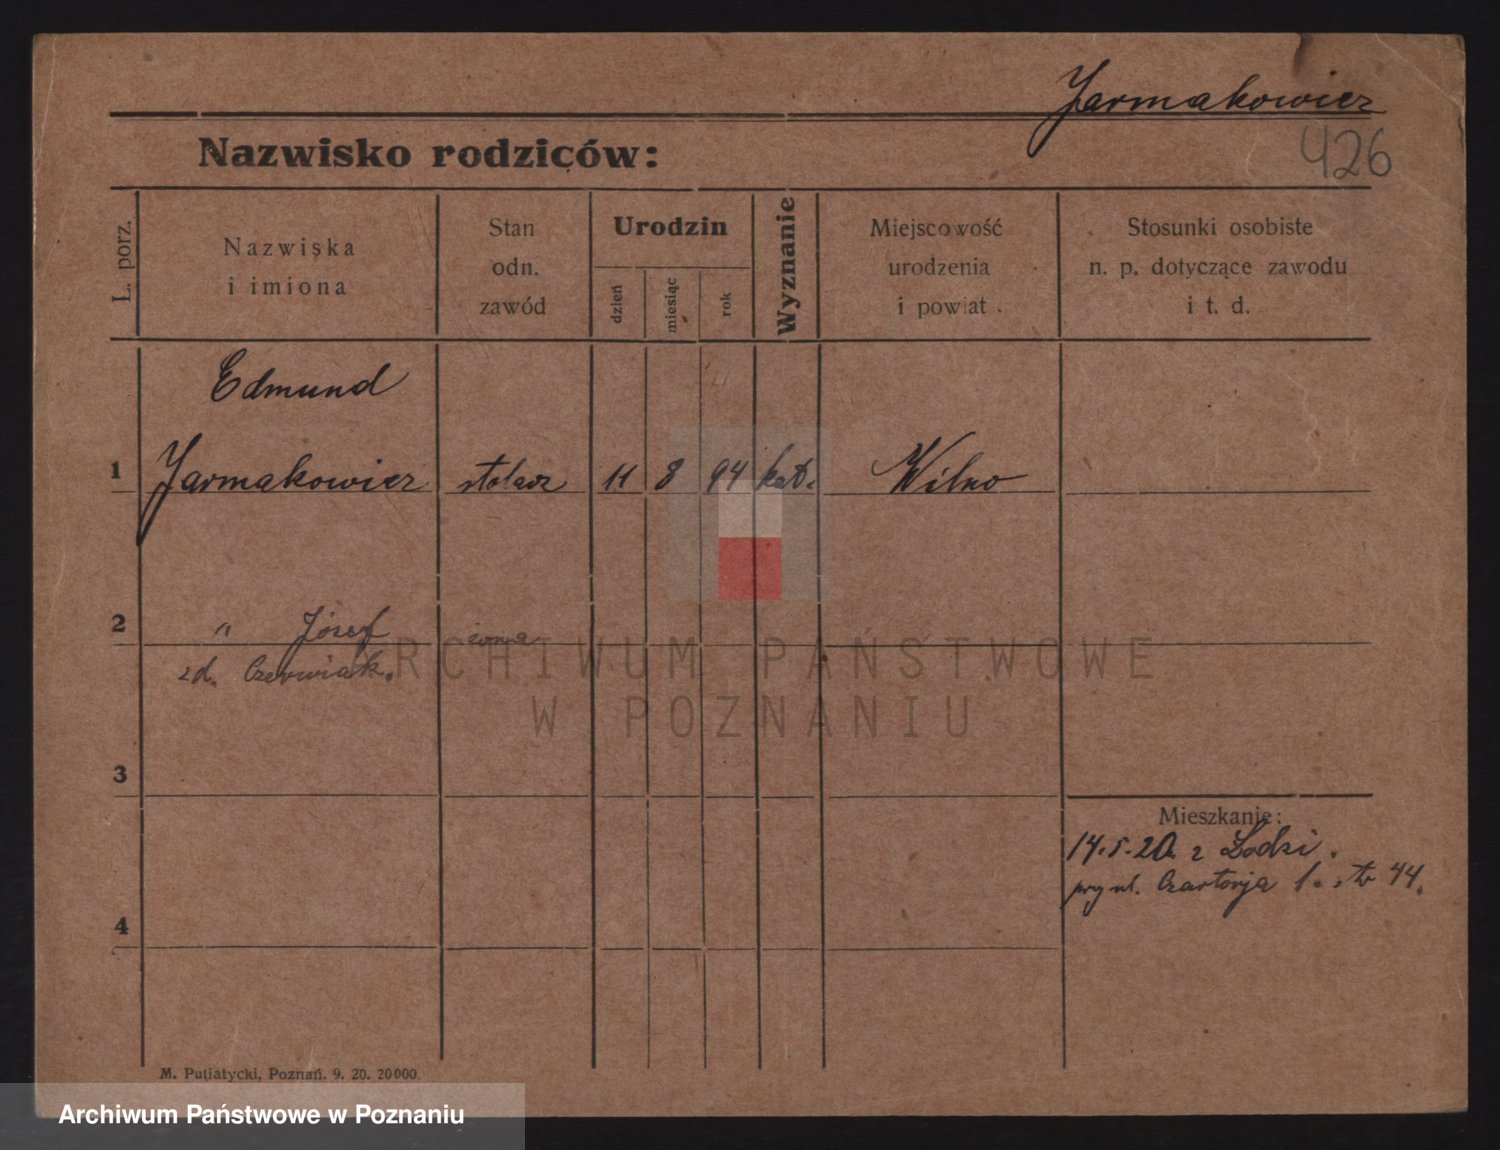 Jarmakowicz
426
Nazwisko rodziców:
L. porz.
Nazwiska
i imiona
Stan
odn.
zawód
Urodzin
dzień
miesiąc
rok
Wyznanie
Miejscowość
urodzenia
i powiat.
Stosunki osobiste
n. p. dotyczące zawodu
i t. d.
Edmund
1 Jarmakowicz stolarz 11 8 94 kat. Wilno
2 " Józef żona
zd. Czerwiak.
ARCHIWUM PAŃSTWOWE
W POZNANIU
3
Mieszkanie:
14.5.20. z Łodzi.
przy ul. Czartorja 1. 44.
4
M. Putiatycki, Poznań. 9. 20. 20000.
Archiwum Państwowe w Poznaniu